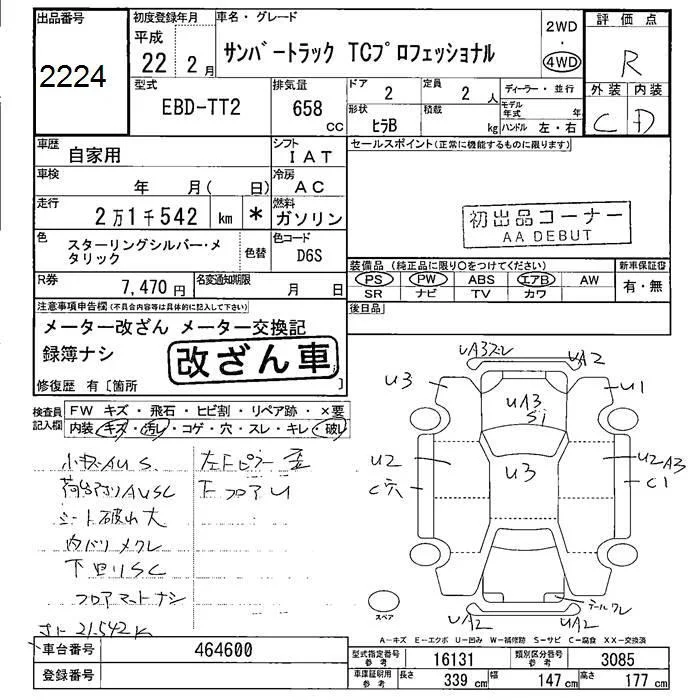 出品番号
2224
初度登録年月
平成
22 年 2 月
車名・グレード
サンバートラック TCプロフェッショナル
2WD
・
4WD
評価点
R
外装 内装
C D
型式
EBD-TT2
排気量
658 cc
ドア
2
定員
2 人
形状
ヒラB
積載
kg
ディーラー・並行
モデル年式 年
ハンドル 左・右
車歴
自家用
シフト
IAT
車検
年 月( 日)
冷房
AC
走行
2万1千542 km *
燃料
ガソリン
色
スターリングシルバー・メタリック
色替
色コード
D6S
R券
7,470 円
名変通知期限
月 日
セールスポイント(正常に機能するものに限ります)
初出品コーナー
AA DEBUT
装備品 (純正品に限り○をつけてください)
新車保証書
PS PW ABS エアB AW
SR ナビ TV カワ
有・無
後日品
注意事項申告欄(不具合内容等は具体的に記入して下さい)
メーター改ざん メーター交換記
録簿ナシ
改ざん車
修復歴 有〔箇所 〕
検査員記入欄
FW キズ・飛石・ヒビ割・リペア跡・×要
内装・キズ・汚レ・コゲ・穴・スレ・キレ・破レ
小キズAUS
荷台アオリAUSC
シート破れ大
内バリメクレ
下回リSC
フロアマットナシ
21.542K
左Fピラー歪
下フロアU
UA3 UA2
U3 U1
UA3
Si
U2 U3 U2 A3
C穴 C1
テールワレ
UA2 UA2
スペア
A-キズ E-エクボ U-凹み W-補修跡 S-サビ C-腐食 XX-交換済
車台番号
464600
登録番号
型式指定番号
参考
16131
類別区分番号
参考
3085
車庫証明用
参考
長さ 339 cm 幅 147 cm 高さ 177 cm